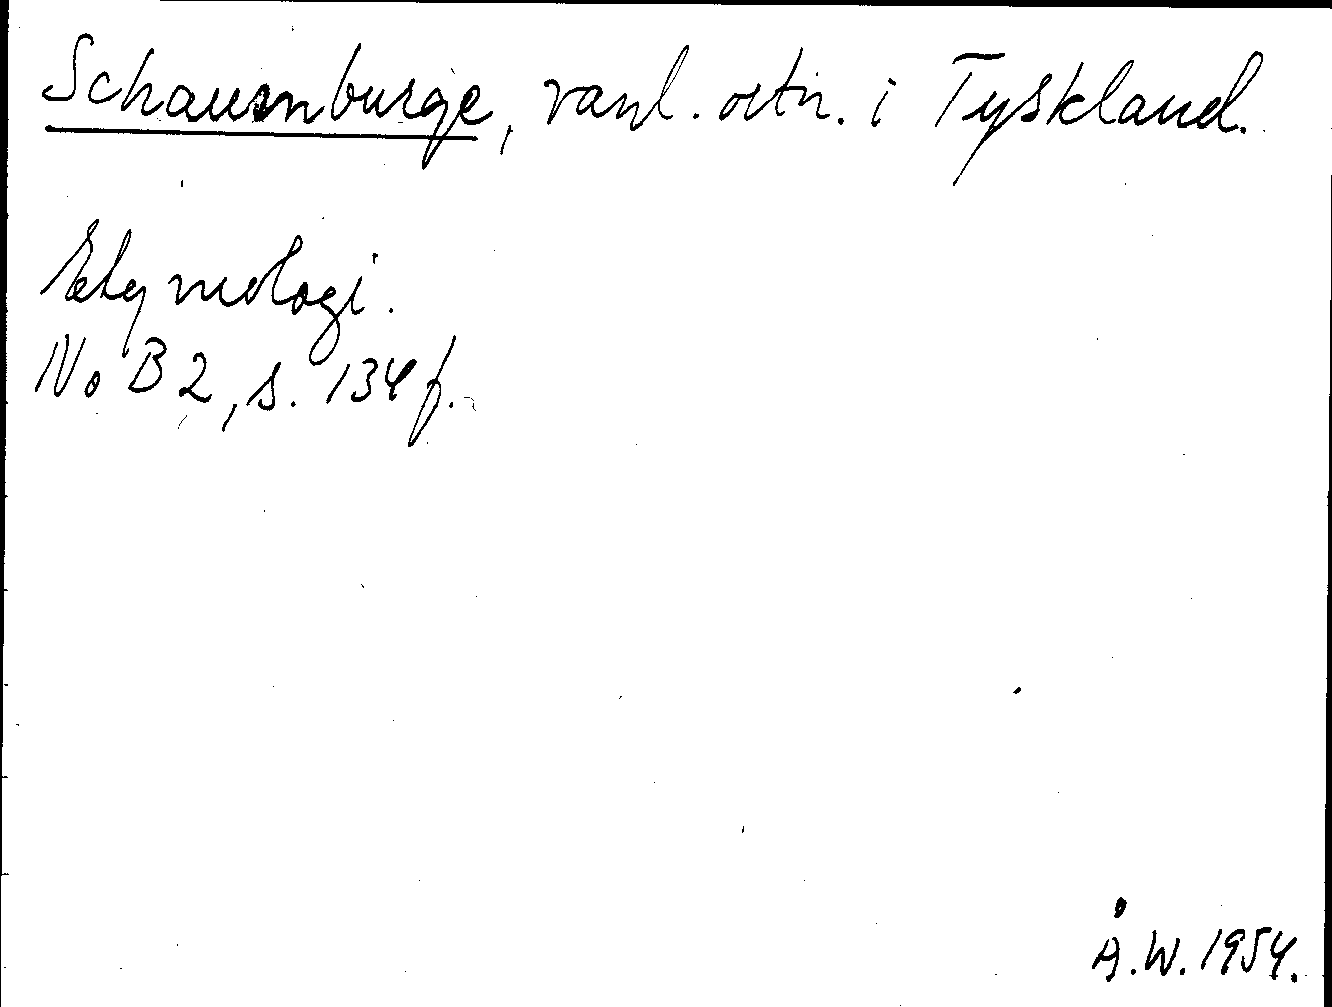 Schauenburge, vanl. ortn. i Tyskland.
Etymologi.
NoB 2, s. 134 f.
Å.W. 1954.